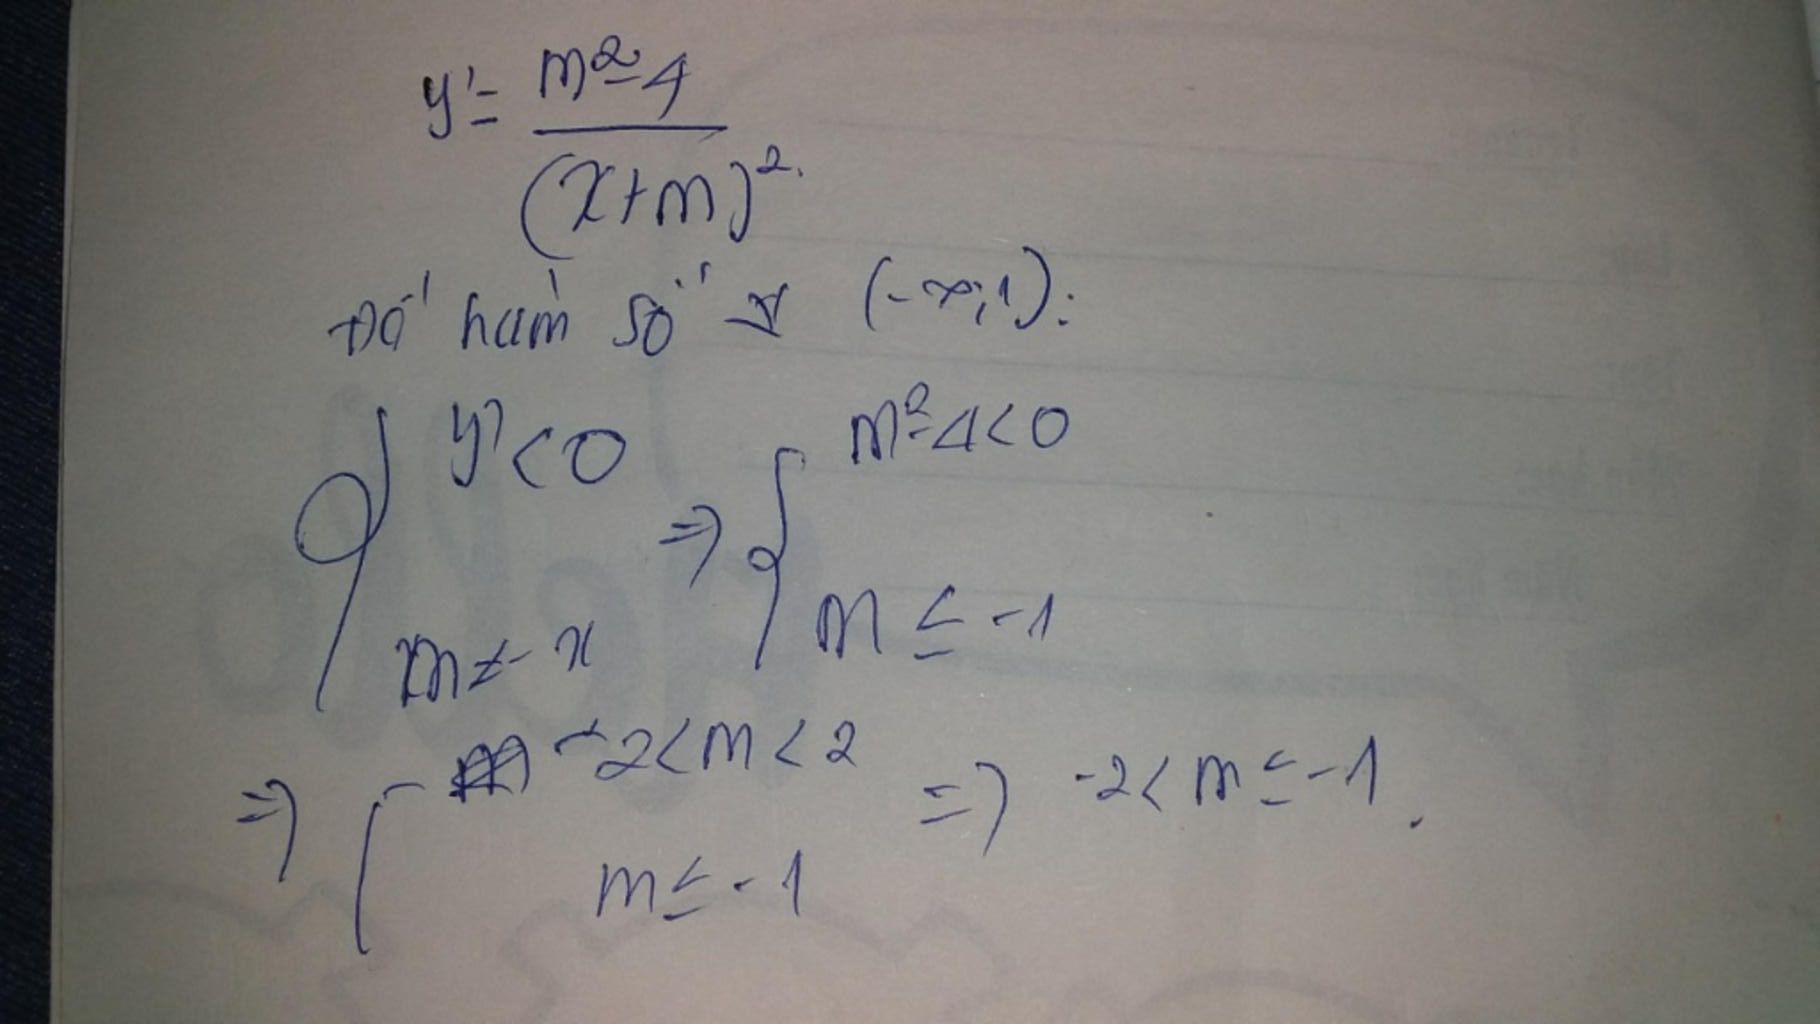 y' = m² - 4 / (x+m)²
Để hàm số ↘ (-∞; 1):
{ y' < 0 ⇒ { m² - 4 < 0
m ≠ -x m ≤ -1
⇒ { -2 < m < 2 ⇒ -2 < m ≤ -1.
m ≤ -1